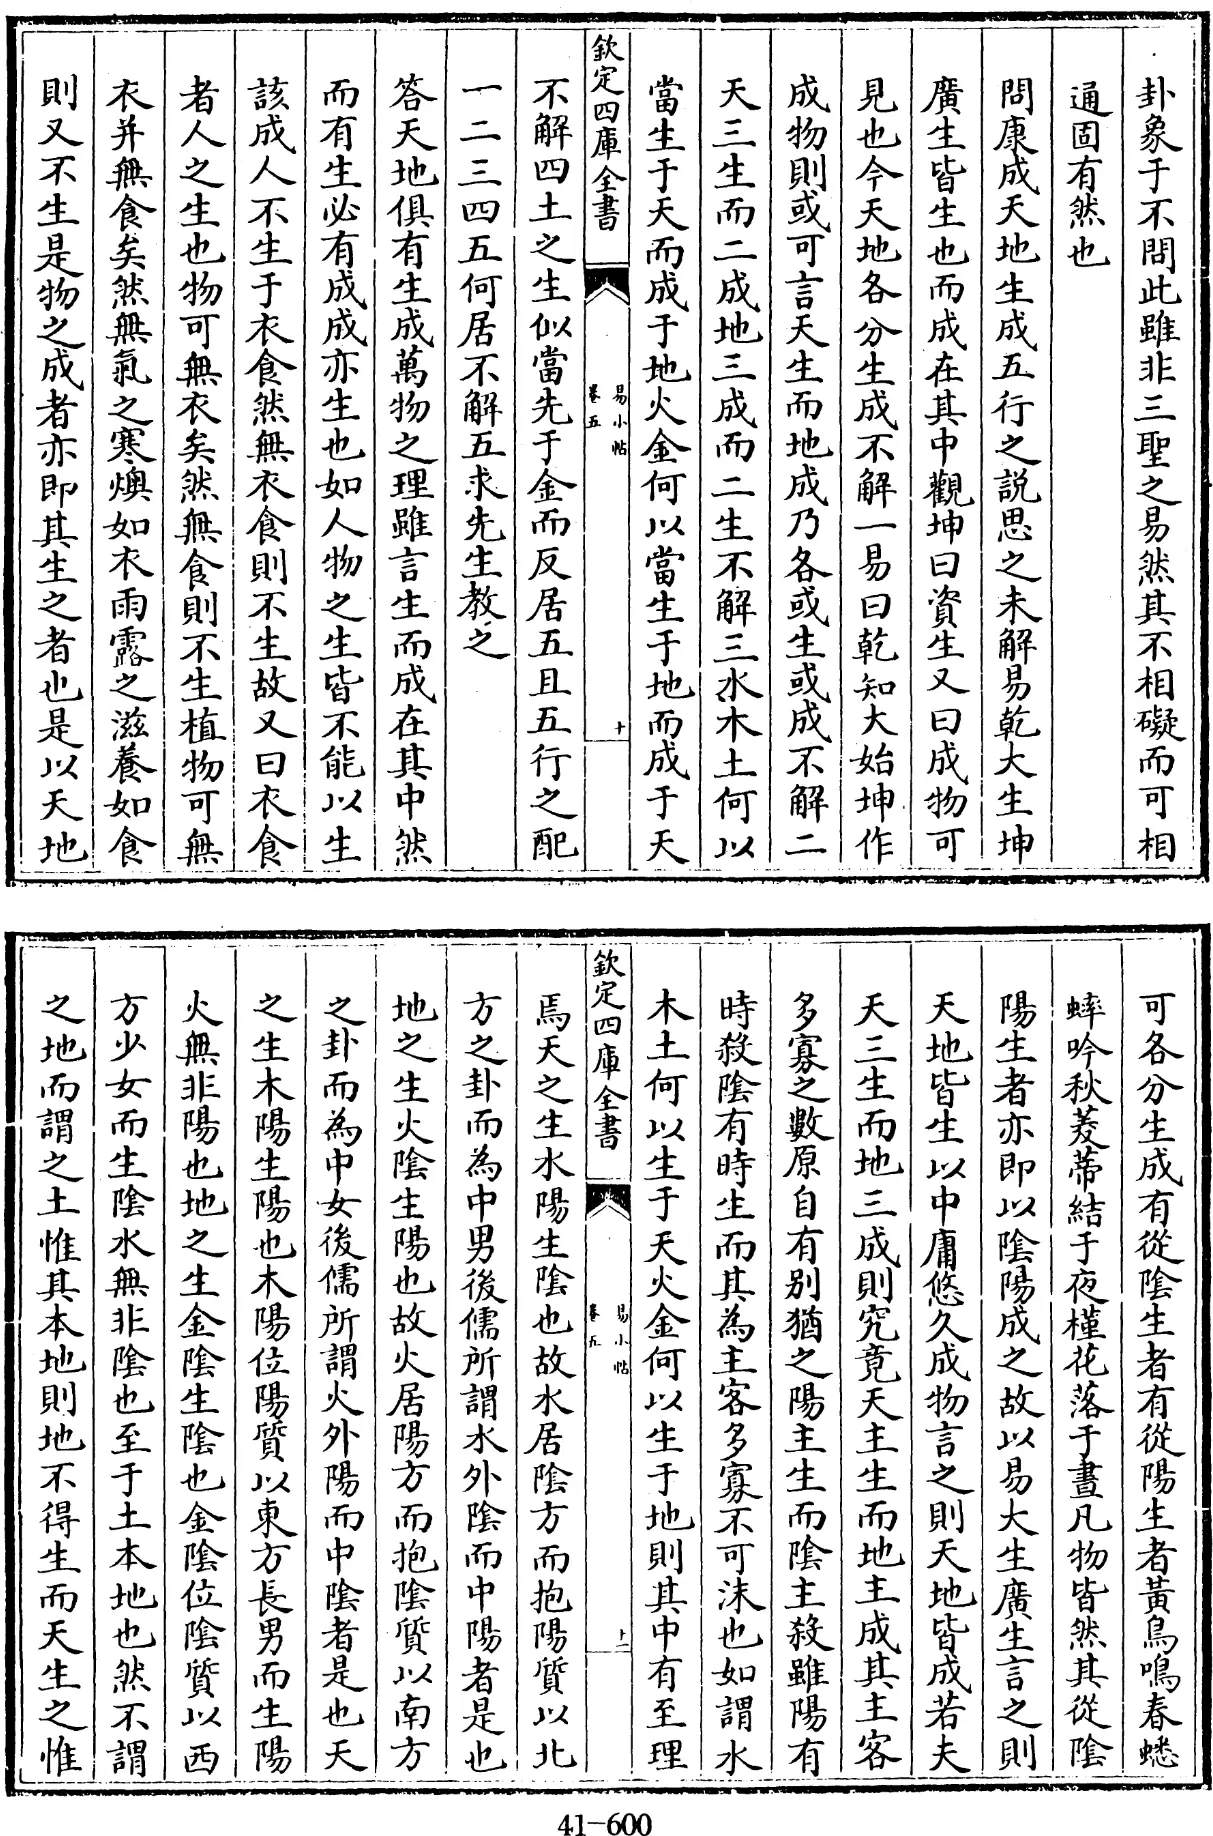 卦象于不問此雖非三聖之易然其不相礙而可相
通固有然也
問康成天地生成五行之説思之未解易乾大生坤
廣生皆生也而成在其中觀坤曰資生又曰成物可
見也今天地各分生成不解一易曰乾知大始坤作
成物則或可言天生而地成乃各或生或成不解二
天三生而二成地三成而二生不解三水木土何以
當生于天而成于地火金何以當生于地而成于天
欽定四庫全書
易小帖
卷五
十
不解四土之生似當先于金而反居五且五行之配
一二三四五何居不解五求先生教之
答天地俱有生成萬物之理雖言生而成在其中然
而有生必有成成亦生也如人物之生皆不能以生
該成人不生于衣食然無衣食則不生故又曰衣食
者人之生也物可無衣矣然無食則不生植物可無
衣并無食矣然無氣之寒燠如衣雨露之滋養如食
則又不生是物之成者亦即其生之者也是以天地
可各分生成有從陰生者有從陽生者黃鳥鳴春蟋
蟀吟秋菱蒂結于夜槿花落于晝凡物皆然其從陰
陽生者亦即以陰陽成之故以易大生廣生言之則
天地皆生以中庸悠久成物言之則天地皆成若夫
天三生而地三成則究竟天主生而地主成其主客
多寡之數原自有别猶之陽主生而陰主殺雖陽有
時殺陰有時生而其為主客多寡不可沬也如謂水
木土何以生于天火金何以生于地則其中有至理
欽定四庫全書
易小帖
卷五
十一
焉天之生水陽生陰也故水居陰方而抱陽質以北
方之卦而為中男後儒所謂水外陰而中陽者是也
地之生火陰生陽也故火居陽方而抱陰質以南方
之卦而為中女後儒所謂火外陽而中陰者是也天
之生木陽生陽也木陽位陽質以東方長男而生陽
火無非陽也地之生金陰生陰也金陰位陰質以西
方少女而生陰水無非陰也至于土本地也然不謂
之地而謂之土惟其本地則地不得生而天生之惟
41-600